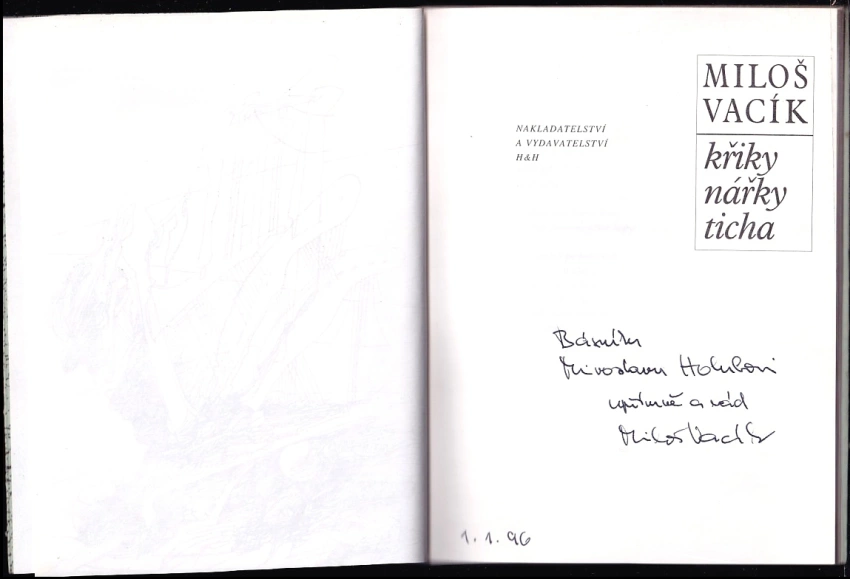 NAKLADATELSTVÍ
A VYDAVATELSTVÍ
H&H
MILOŠ
VACÍK
křiky
nářky
ticha
Básníku
Miroslavu Holubovi
upřímně a rád
Miloš Vacík
1. 1. 96